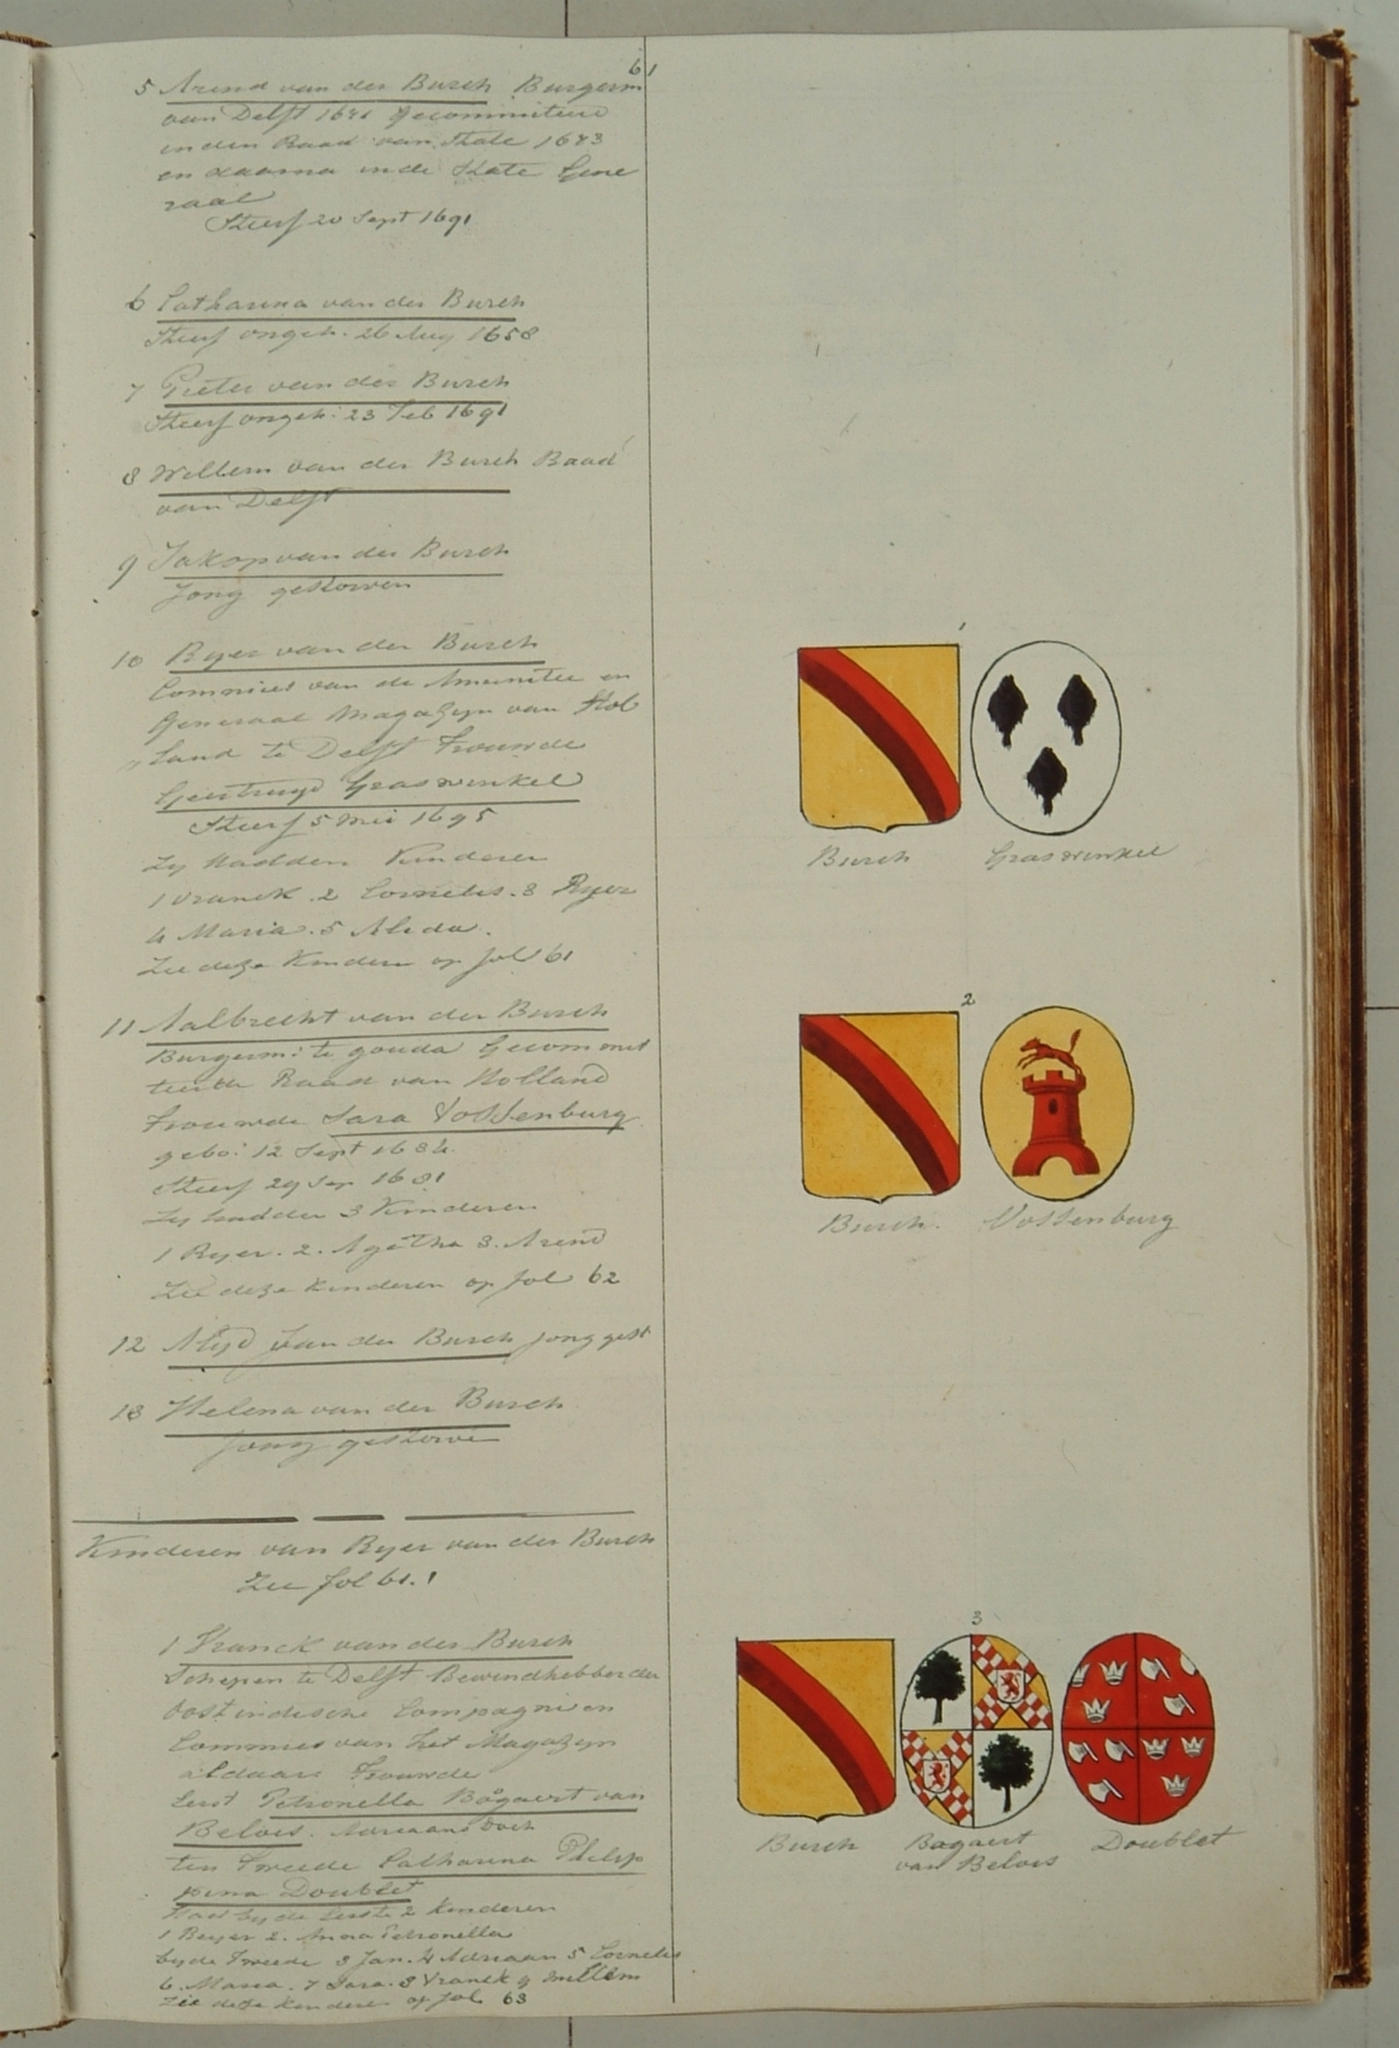 61
5 Arend van der Burch Burgerm
van Delft 1641 Gecommitteerd
in den Raad van State 1643
en daarna in de State Gene
raal
Sterf 20 Sept 1691
6 Catharina van der Burch
Sterf ongeh. 26 Aug 1658
7 Pieter van der Burch
Sterf ongeh: 23 Feb 1691
8 Willem van der Burch Raad
van Delft
9 Jakop van der Burch
Jong gestorven
10 Ryer van der Burch
Commies van de Amunitie en
Generaal Magazyn van Hol
„land te Delft Trouwde
Geertruyd Graswinkel
Sterf 5 Mei 1695
Zy hadden Kinderen
1 Vranck . 2 Cornelis . 3 Ryer
4 Maria . 5 Alida .
Zie deze Kinderen op fol 61
11 Aalbrecht van der Burch
Burgerm: te gouda Gecommit
teerde Raad van Holland
trouwde Sara Vossenburg
gebo: 12 Sept 1634.
Sterf 29 Sep 1681
Zy hadden 3 Kinderen
1 Ryer . 2 . Agatha 3 . Arend
Zie deze Kinderen op fol 62
12 Alyd van der Burch jong gest
13 Helena van der Burch
jong gestorve
Kinderen van Ryer van der Burch
Zie fol 61. 1
1 Vranck van der Burch
Schepen te Delft Bewindhebber der
Oostindische Compagnie en
Commies van het Magazyn
aldaar Trouwde
Eerst Petronella Bogaert van
Belois . Adriaans doch
ten Tweede Catharina Philip
pina Doublet
Had by de Eerste 2 Kinderen
1 Reyer 2 . Anna Petronella
by de Tweede 3 Jan . 4 Adriaan 5 Cornelis
6 . Maria . 7 Sara . 8 Vranck 9 Willem
Zie deze Kinderen op fol 63
1
Burch Graswinkel
2
Burch. Vossenburg
3
Burch Bogaert Doublet
van Belois